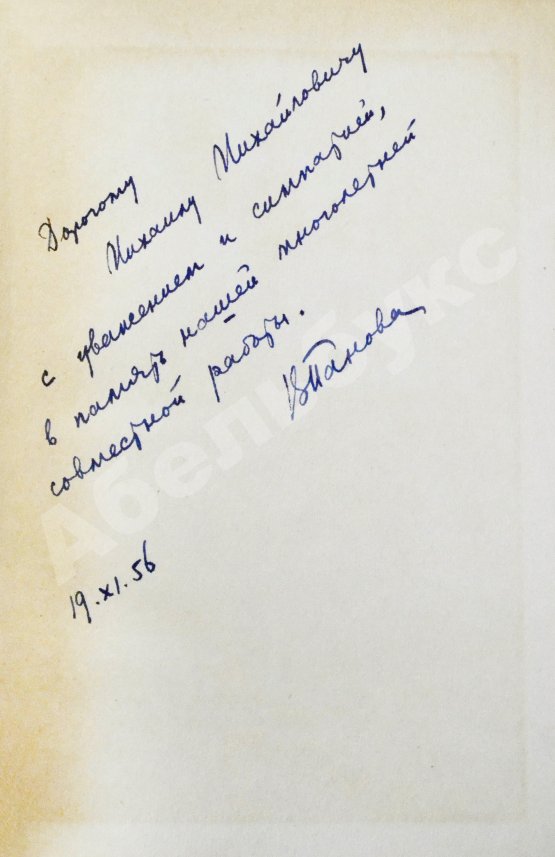 Дорогому
Михаилу Михайловичу
с уважением и симпатией,
в память нашей многолетней
совместной работы.
ВПанова
19.XI.56
Абельбукс